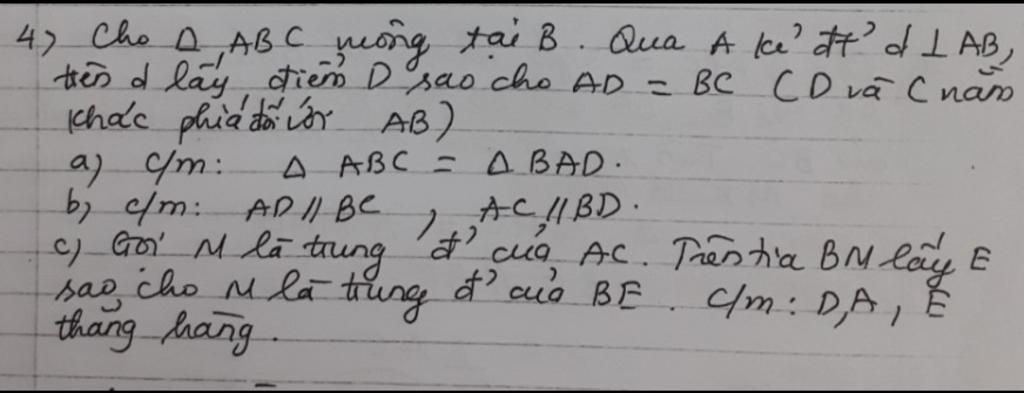 4) Cho Δ ABC vuông tại B. Qua A kẻ đt' d ⊥ AB,
trên d lấy điểm D sao cho AD = BC (D và C nằm
khác phía đối với AB)
a) c/m: Δ ABC = Δ BAD.
b) c/m: AD // BC , AC // BD.
c) Gọi M là trung đ' của AC. Trên tia BM lấy E
sao cho M là trung đ' của BE. c/m: D, A, E
thẳng hàng.